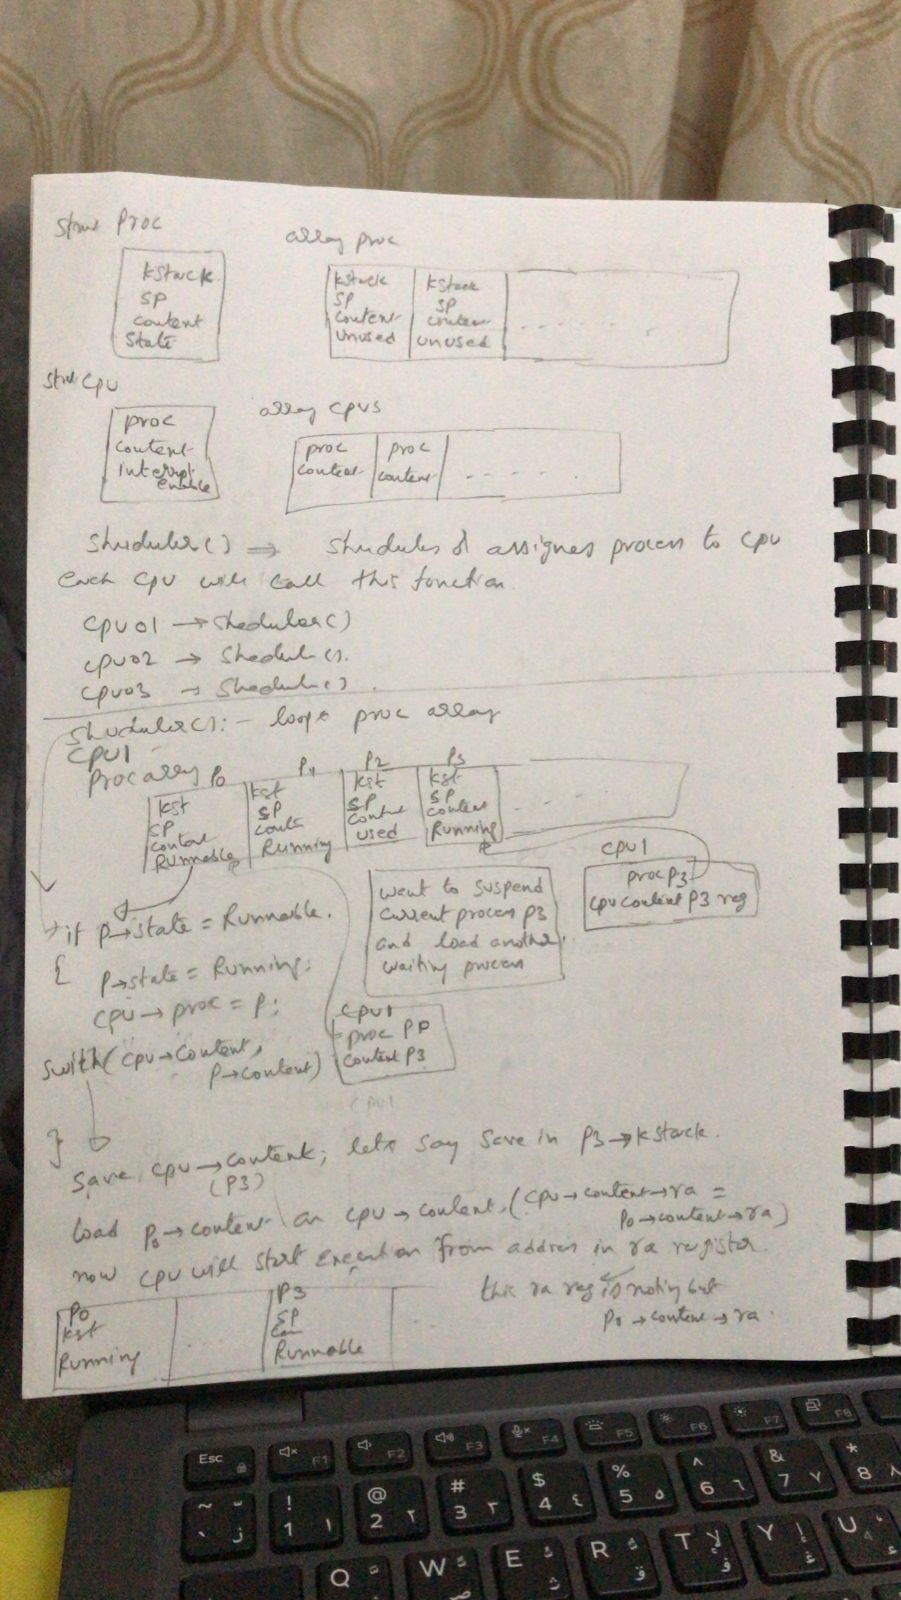 struct Proc
kstack
SP
content
State
array proc
kstack
SP
content
Unused
kstack
SP
content
unused
. . . . . . .
struct CPU
proc
content
interrupt
enable
array CPUs
proc
context
proc
content
- - - - .
Sheduler() => Shedules & assignes process to CPU
Each CPU will call this function.
CPU01 → Sheduler()
CPU02 → Shedul().
CPU03 → Shedul().
Sheduler(): - loops proc array
CPU1
Proc array
P0
kst
SP
content
RUNNABLE
P1
kst
SP
Running
P2
kst
SP
used
P3
kst
SP
content
Running
CPU1
proc P3
CPU content P3 reg
want to suspend
current process P3
and load another
waiting process
if P→state = Runnable.
{
P→state = Running;
CPU → proc = P;
Swith(CPU→content,
P→content)
CPU1
proc
content P3
CPU1
}
Save, CPU → content; lets say save in P3→kstack.
(P3)
load P0→content on CPU → content, (CPU→content→ra =
P0→content→ra)
now CPU will start execution from address in ra register.
this ra reg is nothing but
P0 → content → ra
P0
kst
Running
P3
SP
Con
Runnable
Esc
F1
F2
F3
F4
F5
F6
F7
F8
~
`
ذ
!
1
١
@
2
٢
#
3
٣
$
4
٤
%
5
٥
^
6
٦
&
7
٧
*
8
٨
Q
W
E
R
T
Y
U